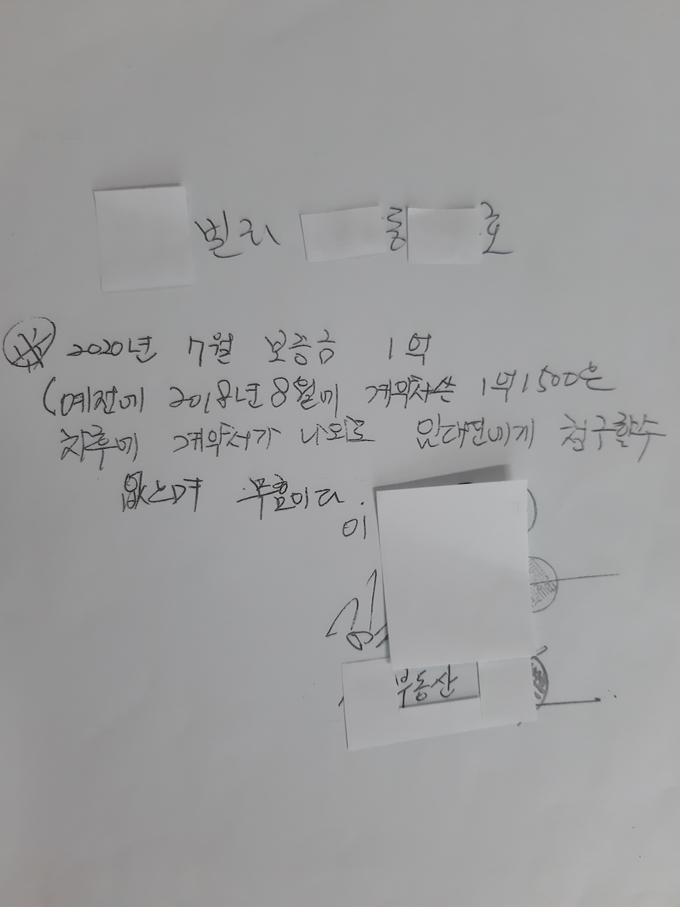 빌라 동 호
2020년 7월 보증금 1억
(예전에 2018년8월에 계약서쓴 1억1500은
차후에 계약서가 나와도 임대인에게 청구할수
없으며 무효이다.
이
김
부동산